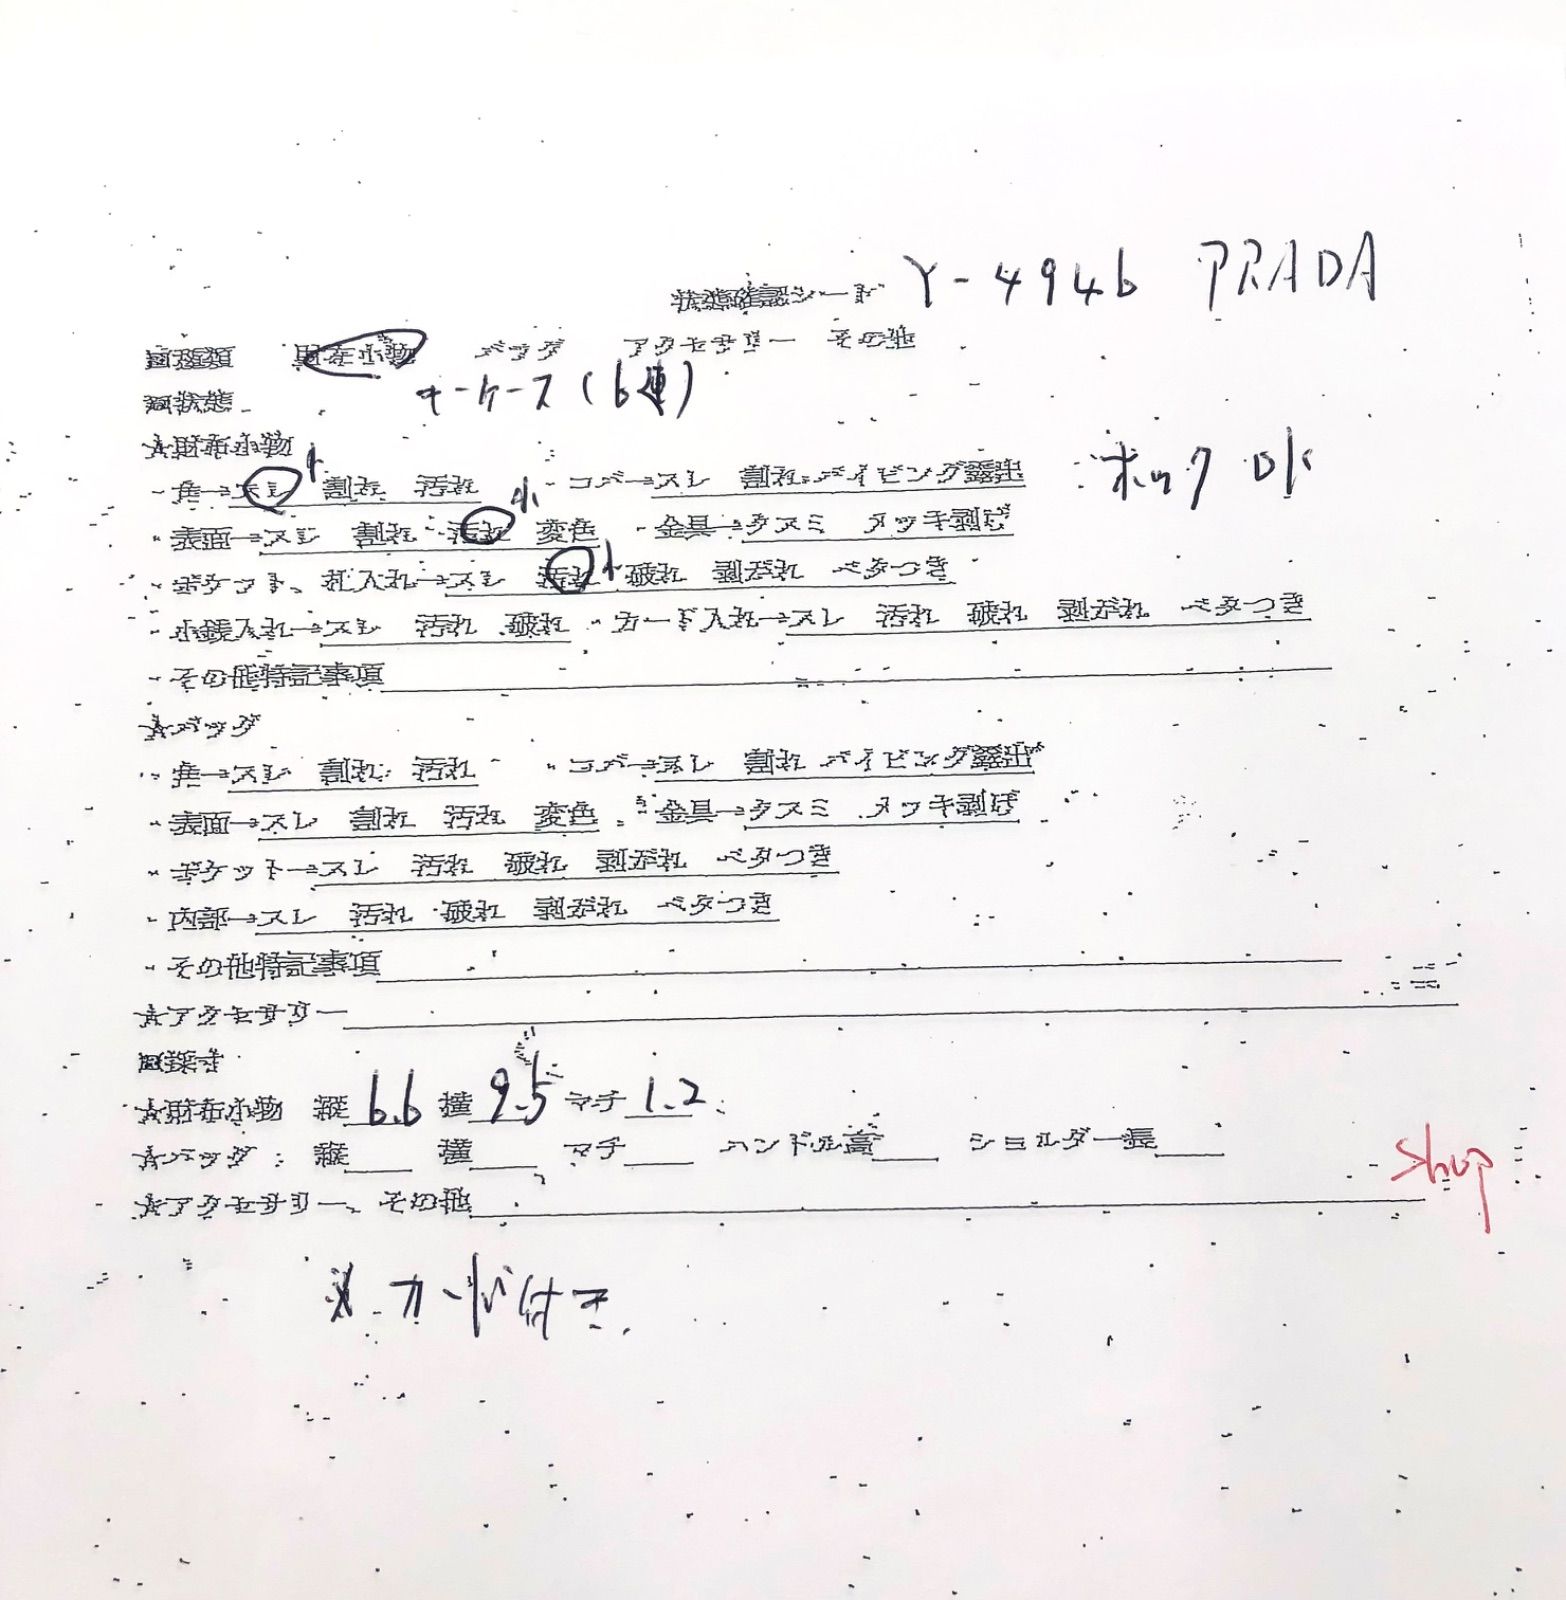 状態確認シート Y-4946 PRADA
□種類 財布小物 バッグ アクセサリー その他
□状態 キーケース(6連)
☆財布小物
・角→スレ 小 割れ 汚れ ・コバ→スレ 割れ パイピング露出 ホック OK
・表面→スレ 割れ 汚れ 小 変色 ・金具→クスミ メッキ剥げ
・ポケット、札入れ→スレ 汚れ 小 破れ 剥がれ ベタつき
・小銭入れ→スレ 汚れ 破れ ・カード入れ→スレ 汚れ 破れ 剥がれ ベタつき
・その他特記事項
☆バッグ
・角→スレ 割れ 汚れ ・コバ→スレ 割れ パイピング露出
・表面→スレ 割れ 汚れ 変色 ・金具→クスミ メッキ剥げ
・ポケット→スレ 汚れ 破れ 剥がれ ベタつき
・内部→スレ 汚れ 破れ 剥がれ ベタつき
・その他特記事項
☆アクセサリー
□採寸
☆財布小物 縦 6.6 横 9.5 マチ 1.2
☆バッグ 縦 横 マチ ハンドル高 ショルダー長
shop
☆アクセサリー、その他
※カード付き